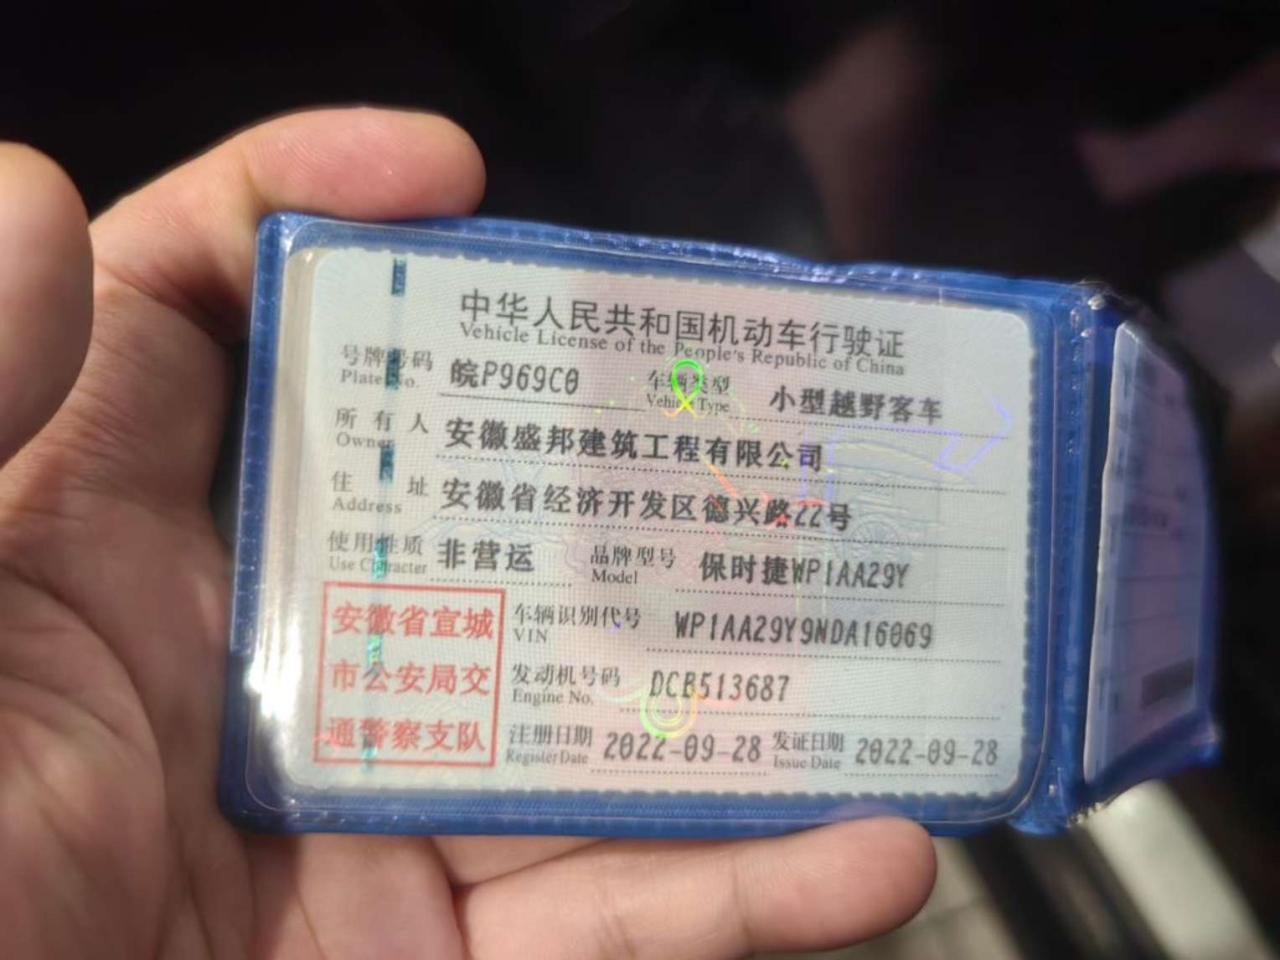 中华人民共和国机动车行驶证
Vehicle License of the People's Republic of China
号牌号码 皖P969C0 车辆类型 小型越野客车
Plate No. Vehicle Type
所有人 安徽盛邦建筑工程有限公司
Owner
住址 安徽省经济开发区德兴路22号
Address
使用性质 非营运 品牌型号 保时捷WP1AA29Y
Use Character Model
安徽省宣城
市公安局交
通警察支队
车辆识别代号 WP1AA29Y9NDA16069
VIN
发动机号码 DCB513687
Engine No.
注册日期 2022-09-28 发证日期 2022-09-28
Register Date Issue Date